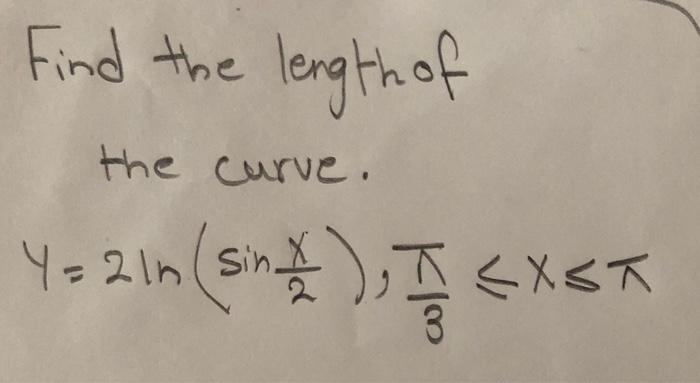 Find the length of
the curve.
y = 2 ln(sin x/2), π/3 ≤ x ≤ π